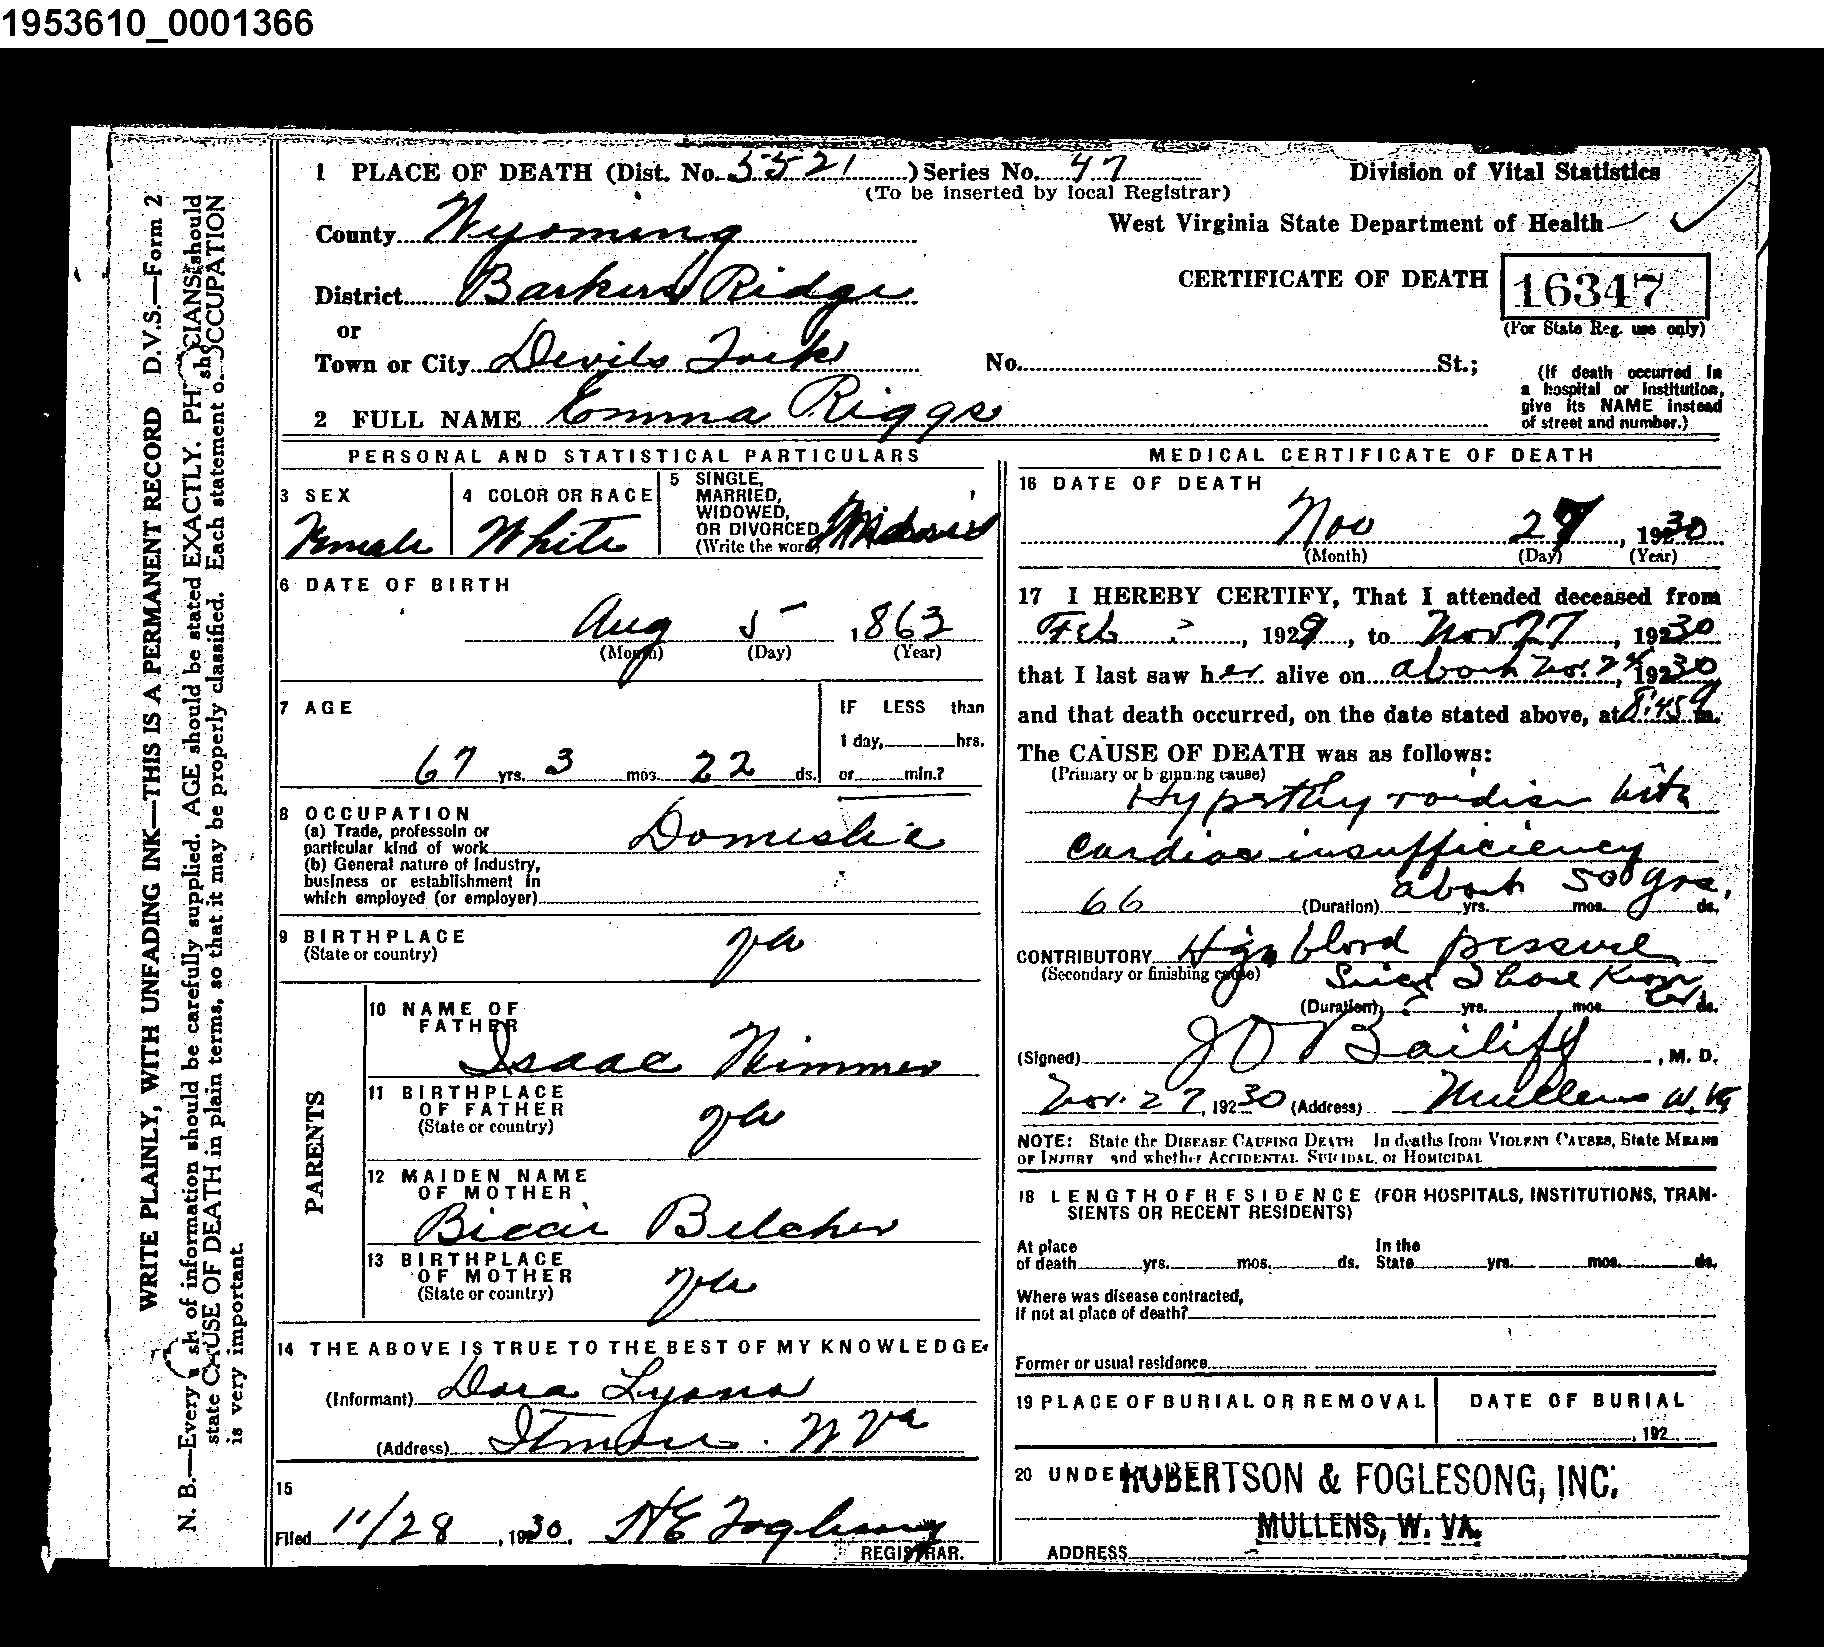 1953610_0001366
WRITE PLAINLY, WITH UNFADING INK—THIS IS A PERMANENT RECORD D.V.S.—Form 2
N. B.—Every of information should be carefully supplied. AGE should be stated EXACTLY. should
state CAUSE OF DEATH in plain terms, so that it may be properly classified. Each statement OCCUPATION
is very important.
1 PLACE OF DEATH (Dist. No. 5521) Series No. 47
(To be inserted by local Registrar)
Division of Vital Statistics
West Virginia State Department of Health
CERTIFICATE OF DEATH
16347
(For State Reg. use only)
County Wyoming
District Barkers Ridge
or
Town or City Devils Fork
No. St.;
(If death occurred in
a hospital or institution,
give its NAME instead
of street and number.)
2 FULL NAME Emma Riggs
PERSONAL AND STATISTICAL PARTICULARS
3 SEX
Female
4 COLOR OR RACE
White
5 SINGLE,
MARRIED,
WIDOWED,
OR DIVORCED
(Write the word)
6 DATE OF BIRTH
Aug 5 1863
(Month) (Day) (Year)
7 AGE
67 yrs. 3 mos. 22 ds.
IF LESS than
1 day, hrs.
or min.?
8 OCCUPATION
(a) Trade, professoin or
particular kind of work
Domestic
(b) General nature of industry,
business or establishment in
which employed (or employer)
9 BIRTHPLACE
(State or country)
Va
PARENTS
10 NAME OF
FATHER
Isaac
11 BIRTHPLACE
OF FATHER
(State or country)
Va
12 MAIDEN NAME
OF MOTHER
Belcher
13 BIRTHPLACE
OF MOTHER
(State or country)
Va
14 THE ABOVE IS TRUE TO THE BEST OF MY KNOWLEDGE.
(Informant) Dora Lyons
(Address) Itmann W Va
15
Filed 11/28, 1930. H E Foglesong
REGISTRAR.
MEDICAL CERTIFICATE OF DEATH
16 DATE OF DEATH
Nov 27, 1930
(Month) (Day) (Year)
17 I HEREBY CERTIFY, That I attended deceased from
Feb , 1929, to Nov 27, 1930
that I last saw her alive on about Nov. 24, 1930
and that death occurred, on the date stated above, at 8:45 m.
The CAUSE OF DEATH was as follows:
(Primary or b ginning cause)
Hyperthyroidism with
cardiac insufficiency
66
about 50 yrs.
(Duration) yrs. mos. ds.
CONTRIBUTORY High blood pressure
(Secondary or finishing cause)
Since I have known her
(Duration) ? yrs. mos. ds.
(Signed) J O Bailiff, M. D.
Nov. 27, 1930 (Address) Mullens W. Va
NOTE: State the DISEASE CAUSING DEATH In deaths from VIOLENT CAUSES, State MEANS
OF INJURY and whether ACCIDENTAL SUICIDAL, or HOMICIDAL
18 LENGTH OF RESIDENCE (FOR HOSPITALS, INSTITUTIONS, TRAN-
SIENTS OR RECENT RESIDENTS)
At place
of death yrs. mos. ds.
In the
State yrs. mos. ds.
Where was disease contracted,
if not at place of death?
Former or usual residence
19 PLACE OF BURIAL OR REMOVAL
DATE OF BURIAL
, 192
20 UNDE ROBERTSON & FOGLESONG, INC.
MULLENS, W. VA.
ADDRESS